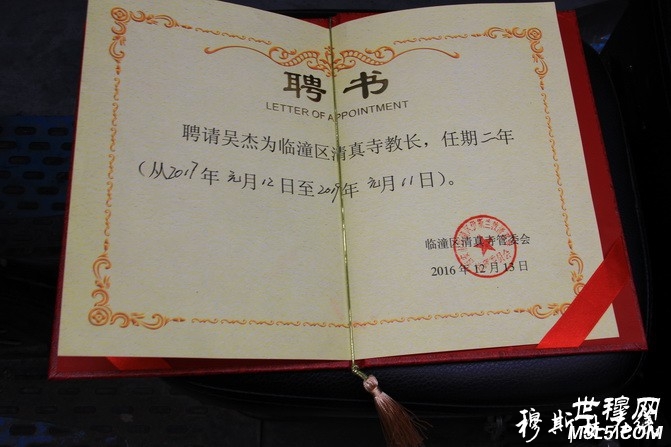 聘书
LETTER OF APPOINTMENT
聘请吴杰为临潼区清真寺教长，任期二年
（从2017年元月12日至2019年元月11日）。
临潼区清真寺管委会
2016年12月13日
世穆网